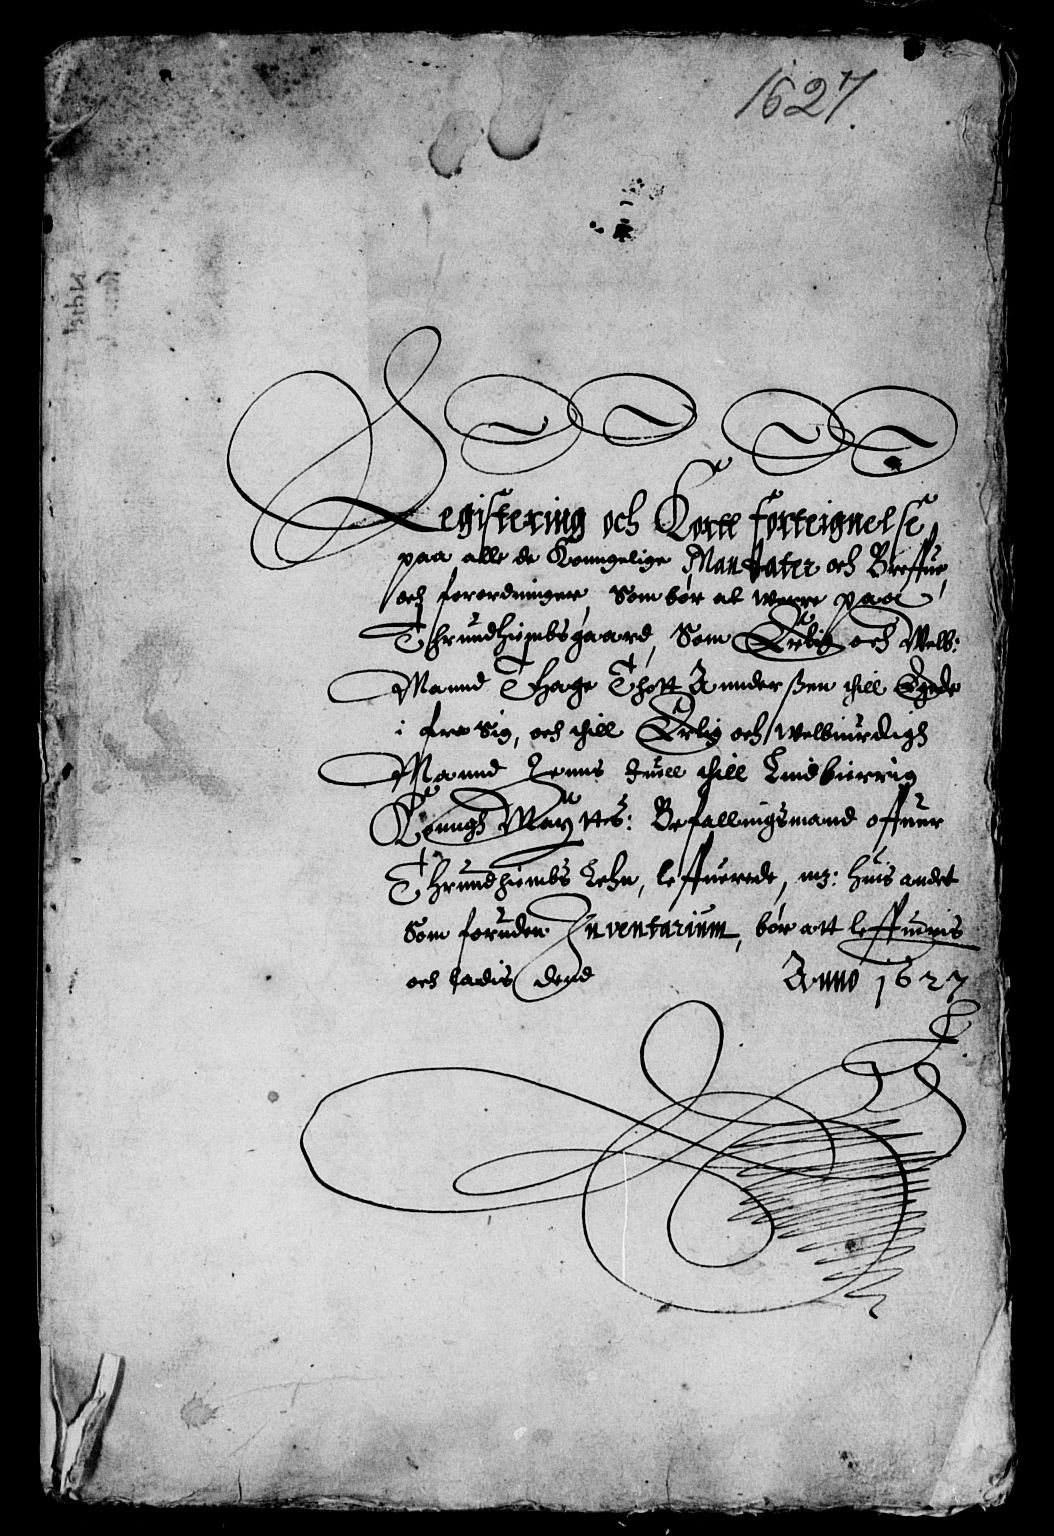 1627.
Registering och Kortt forteignelse
paa alle de Konngelige Mandater och Breffue,
och forordninger, Som bør at werre paa
Thrundhiembsgaard, Som Erlig och Welb:
Mannd Thage Thott Anderßen thill Egede
i fra Sig, och thill Erlig och welbiurdigh
Mannd Jenns Juell thill Lindbierrig
Konngh Maytts: Befallingsmand offuer
Thrundhiembs Lehn, leffuerede, mz: huis andet
Som foruden Inventarium, bør att leffueris
och ladis dend Anno 1627